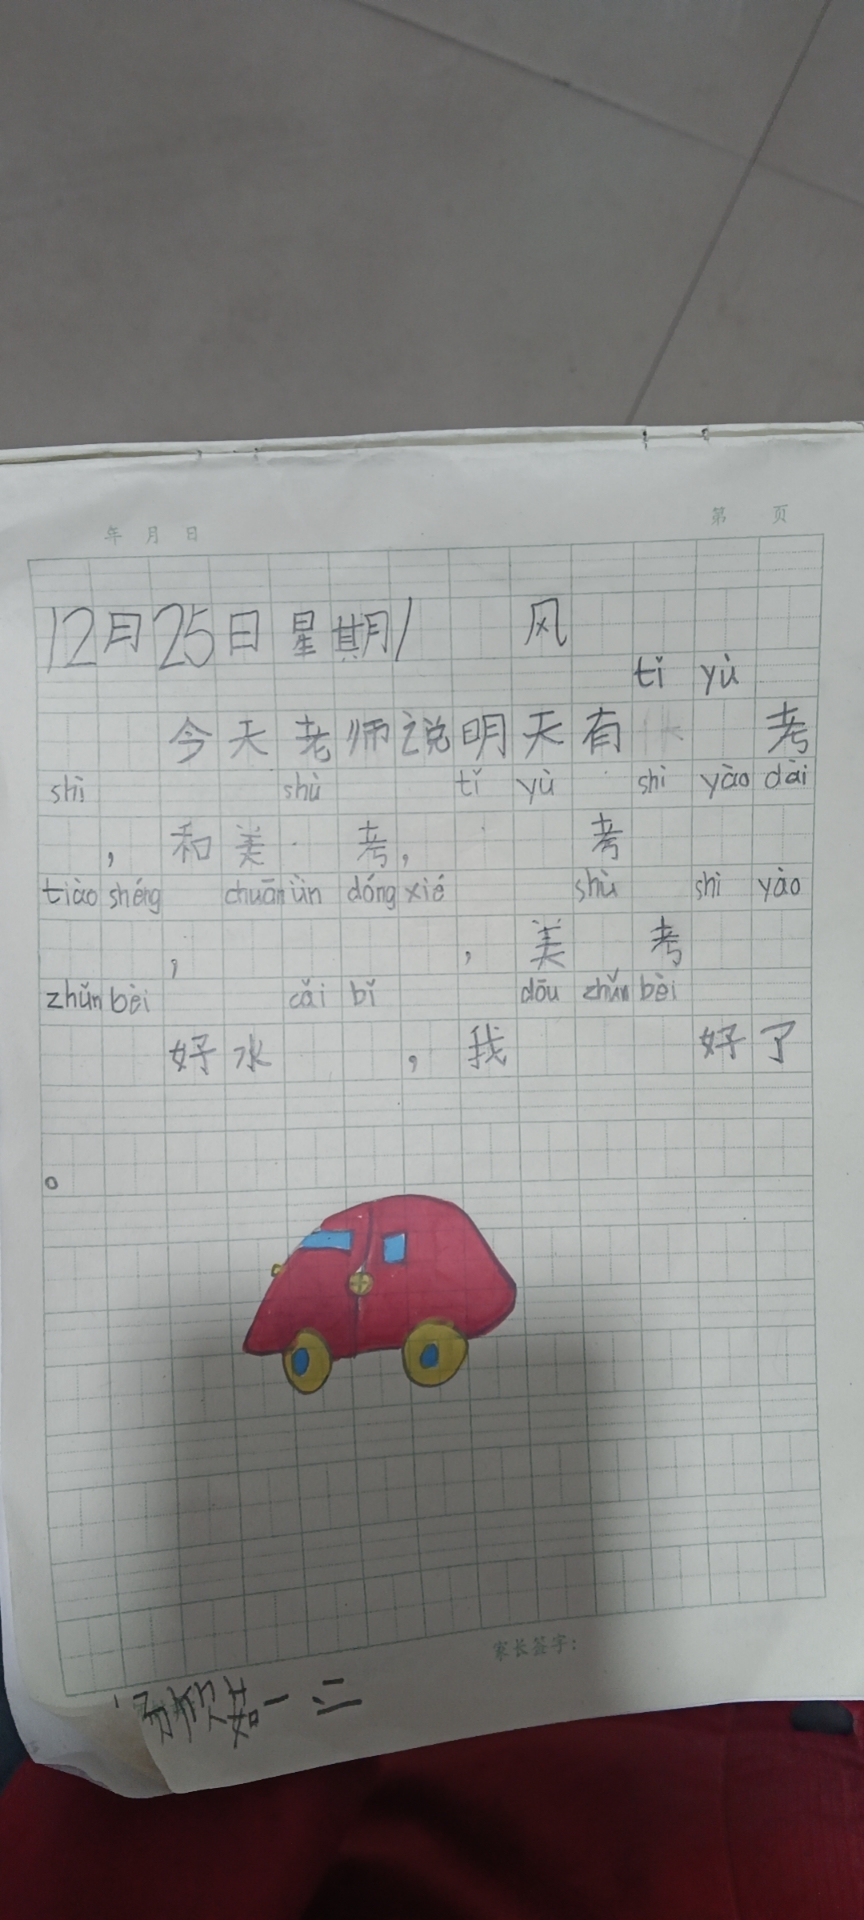 年 月 日 第 页
12月25日星期1 风
tǐ yù
今天老师说明天有 考
shì shù tǐ yù shì yào dài
，和美 考， 考
tiào shéng chuān ùn dóng xié shù shì yào
， ， 美 考
zhǔn bèi cǎi bǐ dōu zhǔn bèi
好水 ，我 好了
。
家长签字：